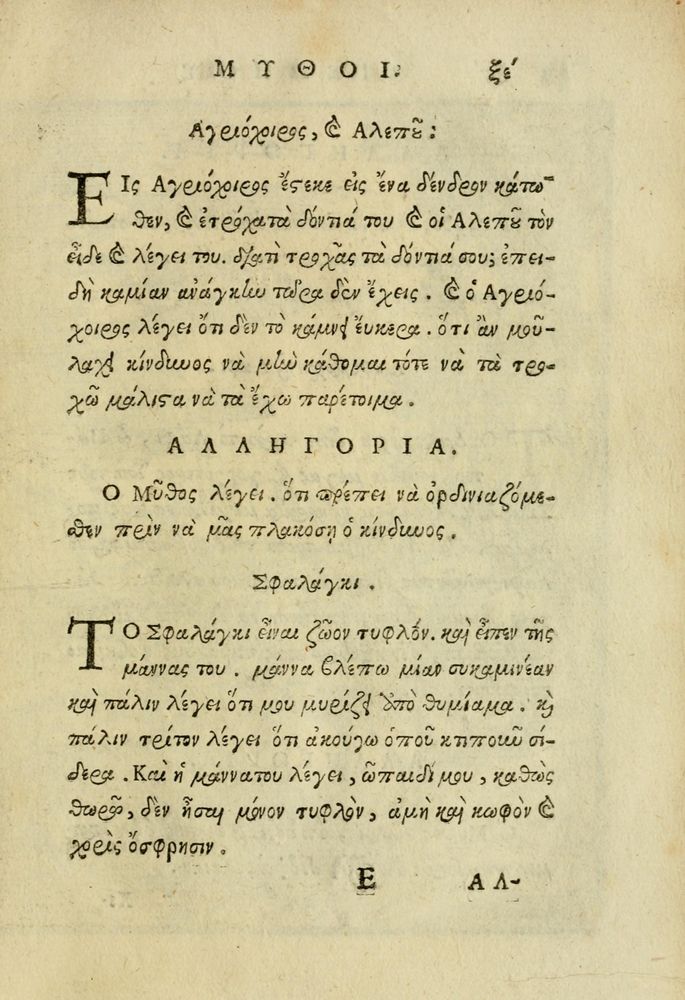 ΜΥΘΟΙ. ξε´
Αγριόχοιρος, ϗ Αλεποῦ:
ΕΙς Αγριόχοιρος ἔστεκε εἰς ἕνα δένδρον κάτω-
θεν, ϗ ἐτρόχατὰ δόντιά του ϗ οἱ Αλεποῦ τὸν
εἶδε ϗ λέγει του. διατὶ τροχᾶς τὰ δόντιά σου; ἐπει-
δὴ καμίαν ανάγκην τώρα δὲν ἔχεις. ϗ ὁ Αγριό-
χοιρος λέγει ὅτι δὲν τὸ κάμνει ἔυκερα. ὅτι ἂν μοῦ-
λαχει κίνδυνος νὰ μὴν κάθομαι τότε νὰ τὰ τρο-
χῶ μάλιστα νὰ τὰ ἔχω παρέτοιμα.
ΑΛΛΗΓΟΡΙΑ.
Ο Μῦθος λέγει. ὅτι πρέπει νὰ ὀρδινιαζόμε-
θεν πρὶν νὰ μᾶς πλακόσῃ ὁ κίνδυνος.
Σφαλάγκι.
ΤΟ Σφαλάγκι εἶναι ζῶον τυφλόν. καὶ εἶπεν τῆς
μάννας του. μάννα βλέπω μίαν συκαμινέαν
καὶ πάλιν λέγει ὅτι μου μυρίζει ὑπὸ θυμίαμα. κỳ
πάλιν τρίτον λέγει ὅτι ἀκούγω ὁποῦ κτιποῦν σί-
δερα. Καὶ ἡ μάννατου λέγει, ὦπαιδί μου, καθὼς
θωρῶ, δὲν ἦσαι μόνον τυφλὸν, ἀμὴ καὶ κωφὸν ϗ
χωρὶς ὄσφρησιν.
Ε ΑΛ-